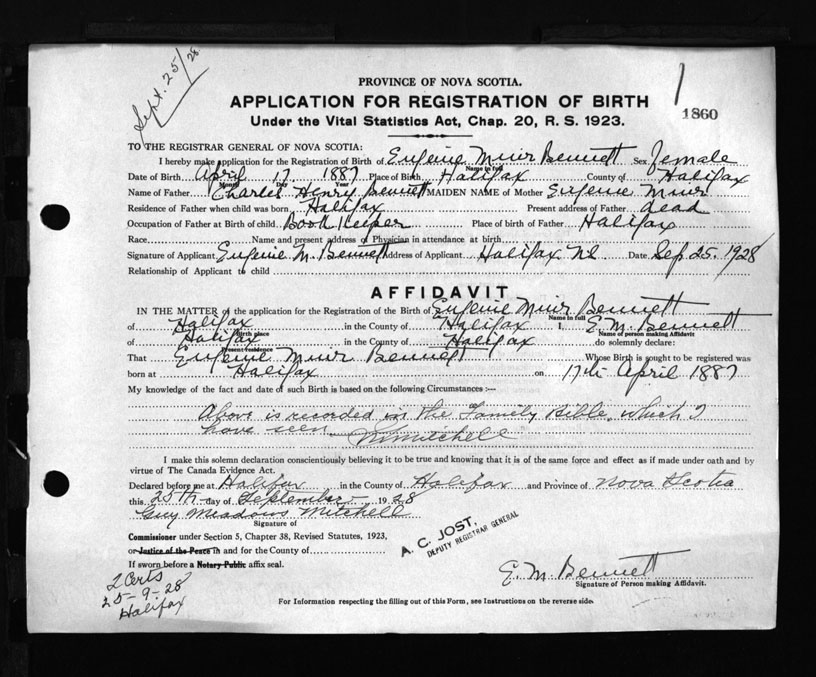 Sept. 25/28
PROVINCE OF NOVA SCOTIA.
APPLICATION FOR REGISTRATION OF BIRTH
1860
Under the Vital Statistics Act, Chap. 20, R. S. 1923.
TO THE REGISTRAR GENERAL OF NOVA SCOTIA:
I hereby make application for the Registration of Birth of Eugenie Muir Bennett Sex female
Name in full
Date of Birth April 17 1887 Place of Birth Halifax County of Halifax
Month Day Year
Name of Father Charles Henry Bennett MAIDEN NAME of Mother Eugenie Muir
Residence of Father when child was born Halifax Present address of Father dead
Occupation of Father at Birth of child Book Keeper Place of birth of Father Halifax
Race Name and present address of Physician in attendance at birth
Signature of Applicant Eugenie M. Bennett Address of Applicant Halifax NS Date Sep 25. 1928
Relationship of Applicant to child
AFFIDAVIT
IN THE MATTER of the application for the Registration of the Birth of Eugenie Muir Bennett
Name in full
of Halifax in the County of Halifax I, E. M. Bennett
Birth place Name of person making Affidavit
of Halifax in the County of Halifax do solemnly declare:
Present residence
That Eugenie Muir Bennett Whose Birth is sought to be registered was
born at Halifax on 17th April 1887
My knowledge of the fact and date of such Birth is based on the following Circumstances :—
Above is recorded in the Family Bible, which I
have seen Mitchell
I make this solemn declaration conscientiously believing it to be true and knowing that it is of the same force and effect as if made under oath and by
virtue of The Canada Evidence Act.
Declared before me at Halifax in the County of Halifax and Province of Nova Scotia
this 25th day of September 1928
Guy Meadows Mitchell
Signature of
Commissioner under Section 5, Chapter 38, Revised Statutes, 1923,
or Justice of the Peace in and for the County of
If sworn before a Notary Public affix seal.
A. C. JOST,
DEPUTY REGISTRAR GENERAL
E. M. Bennett
Signature of Person making Affidavit.
2 Certs
25-9-28
Halifax
For Information respecting the filling out of this Form, see Instructions on the reverse side.